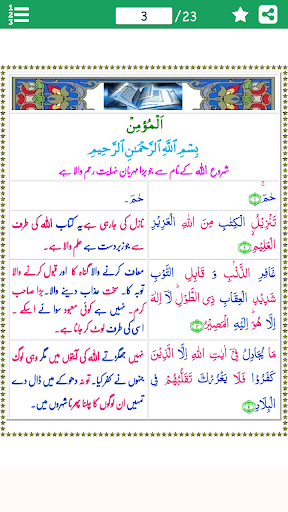 1
2
3
3 /23
اَلْمُؤْمِنْ
بِسْمِ اللّٰهِ الرَّحْمٰنِ الرَّحِيْمِ
شروع اللہ کے نام سے جو بڑا مہربان نہایت رحم والا ہے
حٰمٓ ۚ ﴿۱﴾
حٰمٓ۔
تَنْزِيْلُ الْكِتٰبِ مِنَ اللّٰهِ الْعَزِيْزِ
الْعَلِيْمِ ۙ ﴿۲﴾
نازل کی جارہی ہے یہ کتاب اللہ کی طرف
سے جو زبردست ہے علم والا ہے۔
غَافِرِ الذَّنْۢبِ وَ قَابِلِ التَّوْبِ
شَدِيْدِ الْعِقَابِ ذِی الطَّوْلِ ؕ لَاۤ اِلٰهَ
اِلَّا هُوَ ؕ اِلَيْهِ الْمَصِيْرُ ﴿۳﴾
معاف کرنے والا گناہ کا اور قبول کرنے والا
توبہ کا۔ سخت عذاب دینے والا۔ بڑا صاحب
کرم۔ نہیں ہے کوئی معبود سوائے اسکے ۔
اسی کی طرف لوٹ کر جانا ہے۔
مَا يُجَادِلُ فِیْۤ اٰيٰتِ اللّٰهِ اِلَّا الَّذِيْنَ
كَفَرُوْا فَلَا يَغْرُرْكَ تَقَلُّبُهُمْ فِی
الْبِلَادِ ﴿۴﴾
نہیں جھگڑتے اللہ کی آیتوں میں مگر وہی لوگ
جنہوں نے کفر کیا۔ تو نہ دھوکے میں ڈال دے
تمہیں ان لوگوں کا چلنا پھرنا شہروں میں۔